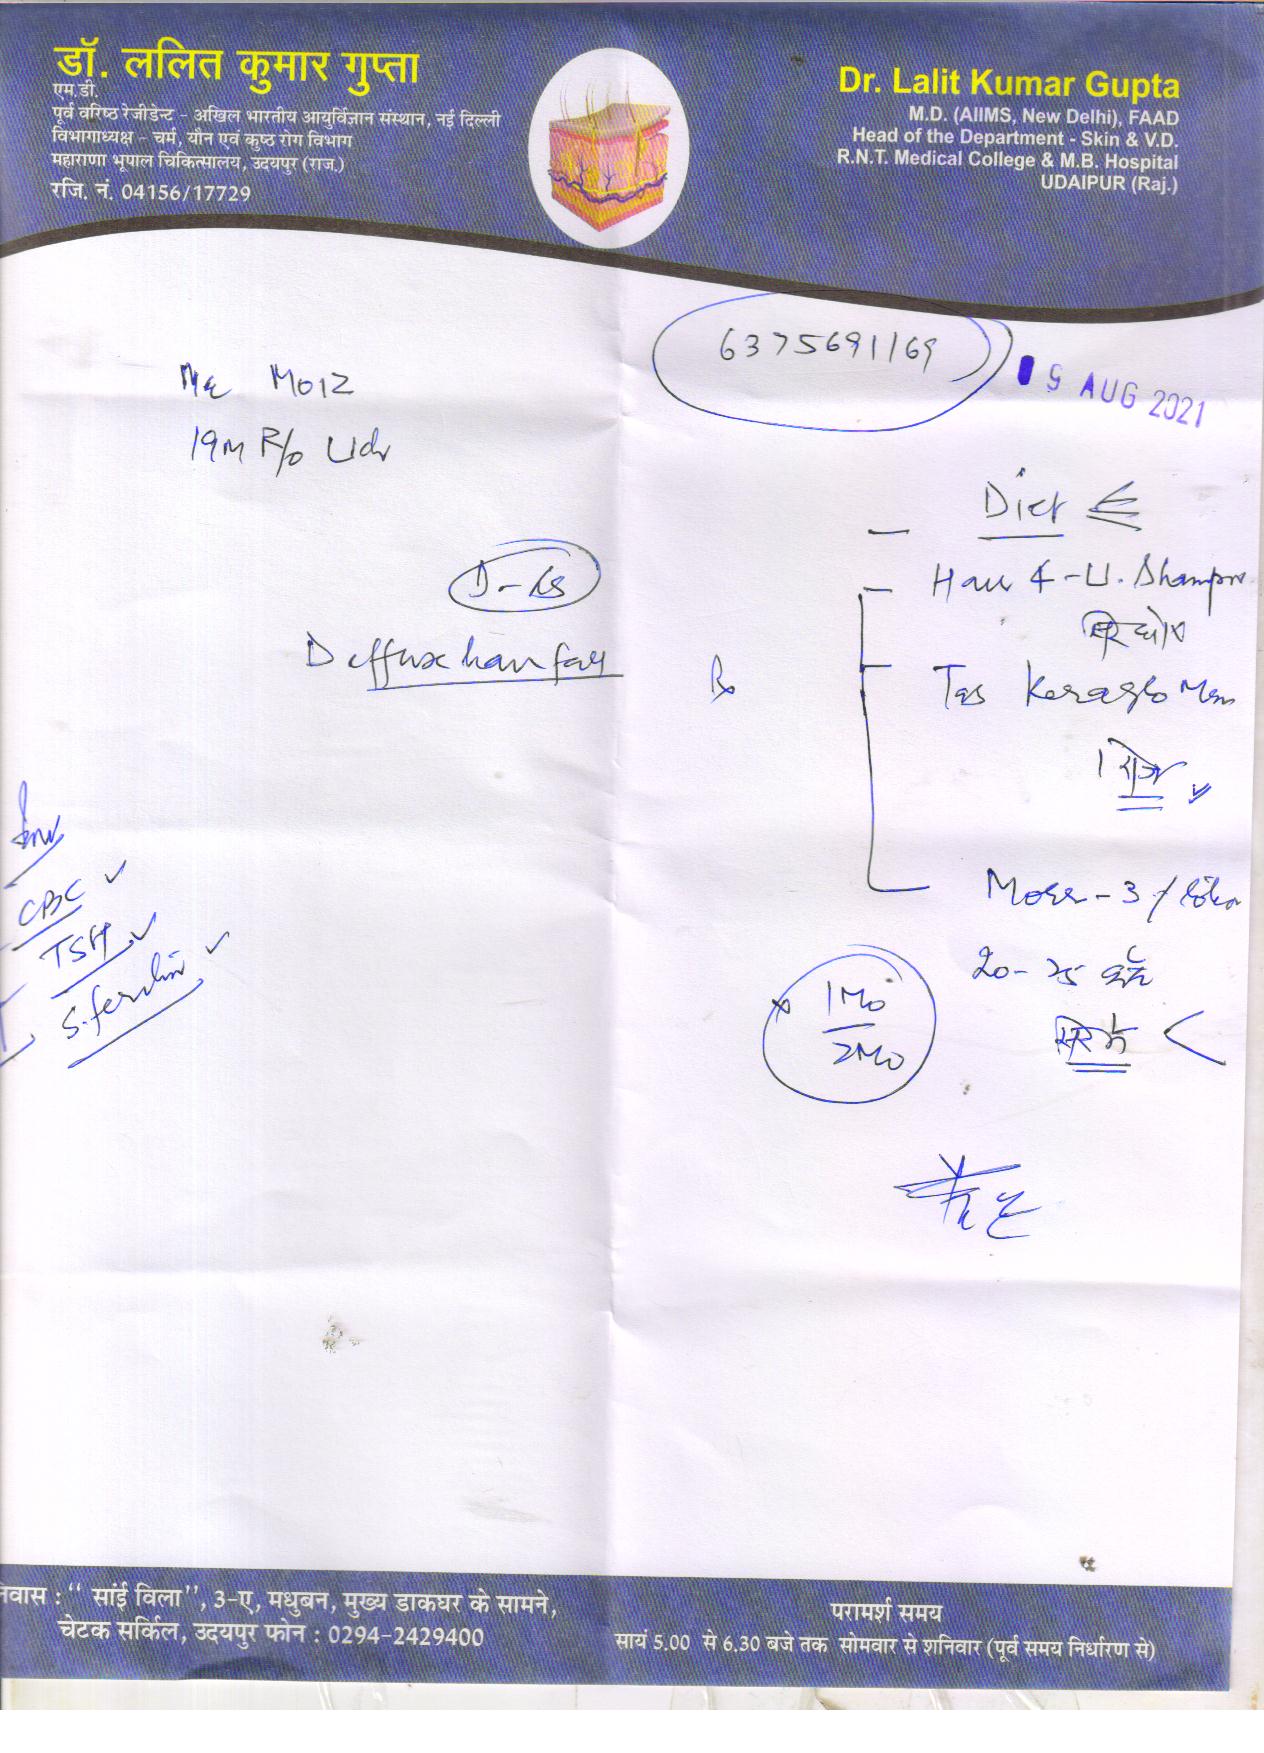 डॉ. ललित कुमार गुप्ता
एम.डी.
पूर्व वरिष्ठ रेजीडेन्ट - अखिल भारतीय आयुर्विज्ञान संस्थान, नई दिल्ली
विभागाध्यक्ष - चर्म, यौन एवं कुष्ठ रोग विभाग
महाराणा भूपाल चिकित्सालय, उदयपुर (राज.)
रजि. नं. 04156/17729
Dr. Lalit Kumar Gupta
M.D. (AIIMS, New Delhi), FAAD
Head of the Department - Skin & V.D.
R.N.T. Medical College & M.B. Hospital
UDAIPUR (Raj.)
6375691169
9 AUG 2021
Moiz
19M R/o Udr
Diet
Hair 4-U. Shampoo
Deffuse hair fall
Rx
Tab Keraglo Men
1 रोज
CBC
TSH
S. ferritin
20-25
1Mo
2Mo
सिर में
निवास : “ सांई विला”, 3-ए, मधुबन, मुख्य डाकघर के सामने,
चेटक सर्किल, उदयपुर फोन : 0294-2429400
परामर्श समय
सायं 5.00 से 6.30 बजे तक सोमवार से शनिवार (पूर्व समय निर्धारण से)